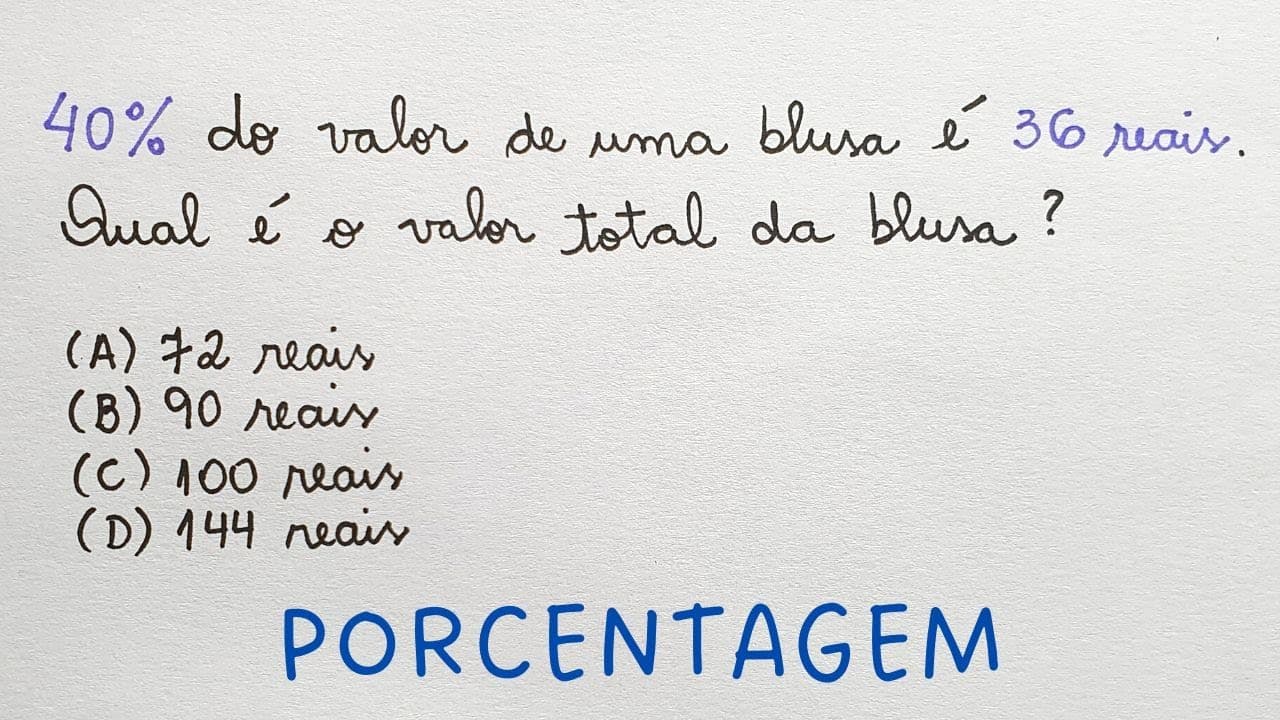 40% do valor de uma blusa é 36 reais.
Qual é o valor total da blusa?
(A) 72 reais
(B) 90 reais
(C) 100 reais
(D) 144 reais
PORCENTAGEM